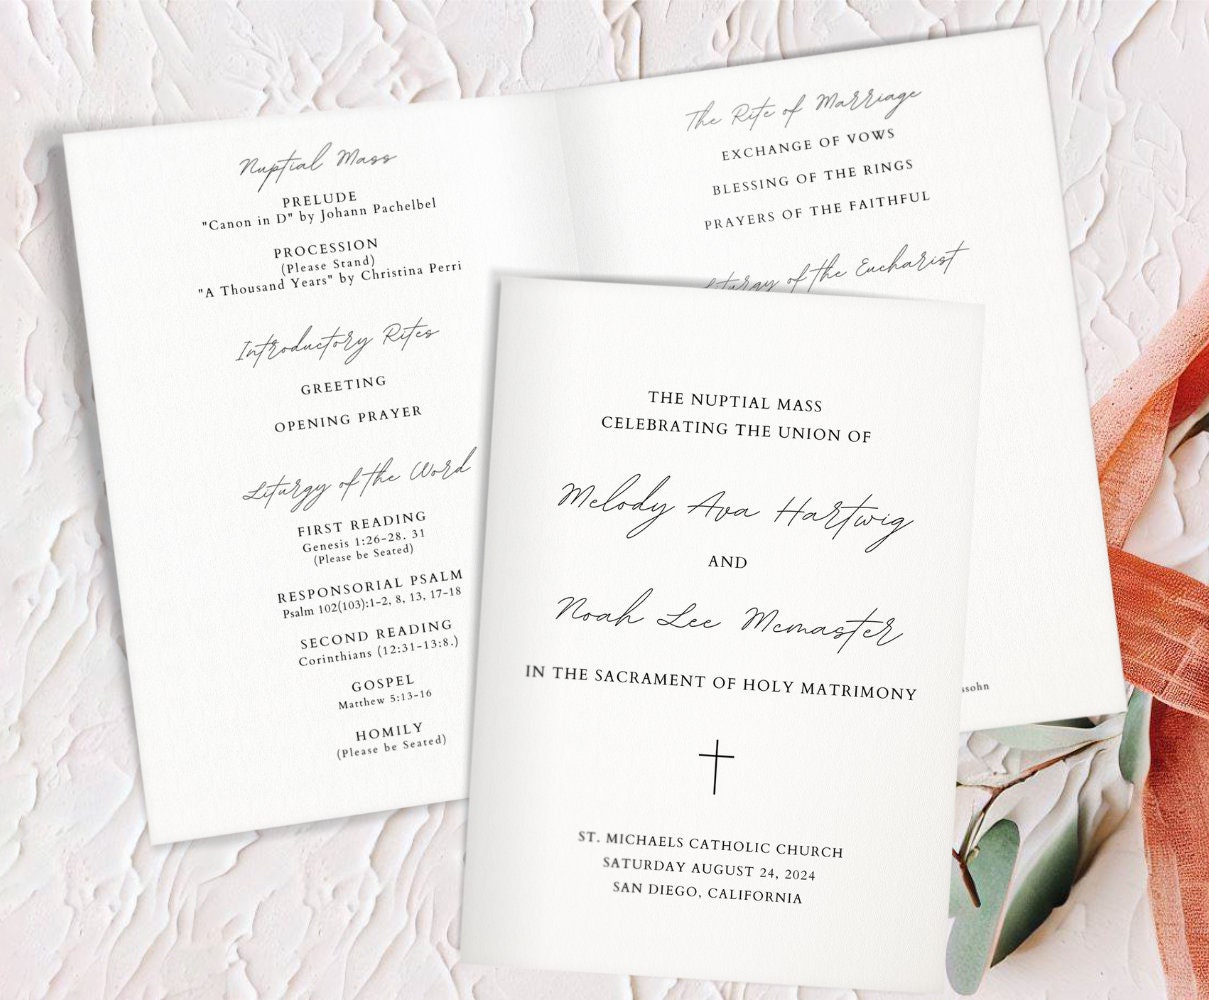 Nuptial Mass
PRELUDE
"Canon in D" by Johann Pachelbel
PROCESSION
(Please Stand)
"A Thousand Years" by Christina Perri
Introductory Rites
GREETING
OPENING PRAYER
Liturgy of the Word
FIRST READING
Genesis 1:26-28, 31
(Please be Seated)
RESPONSORIAL PSALM
Psalm 102(103):1-2, 8, 13, 17-18
SECOND READING
Corinthians (12:31-13:8.)
GOSPEL
Matthew 5:13-16
HOMILY
(Please be Seated)
The Rite of Marriage
EXCHANGE OF VOWS
BLESSING OF THE RINGS
PRAYERS OF THE FAITHFUL
of the Eucharist
THE NUPTIAL MASS
CELEBRATING THE UNION OF
Melody Ava Hartwig
AND
Noah Lee Mcmaster
IN THE SACRAMENT OF HOLY MATRIMONY
ST. MICHAELS CATHOLIC CHURCH
SATURDAY AUGUST 24, 2024
SAN DIEGO, CALIFORNIA